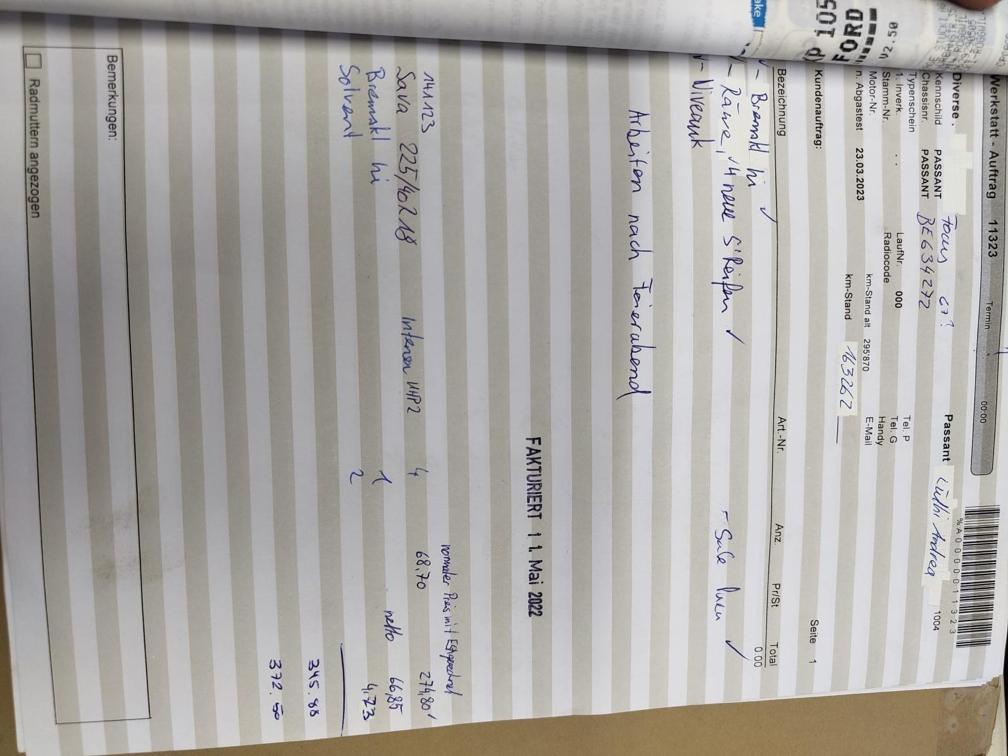 Werkstatt - Auftrag 11323 Termin 00:00
%A0000011323
Diverse.
Passant Lüthi Andrea 1004
Kennschild PASSANT Focus
Chassisnr. PASSANT BE634272
Typenschein
1. Inverk. . . LaufNr. 000 Tel. P
Stamm-Nr. Radiocode Tel. G
Motor-Nr. km-Stand alt 295'870 Handy
n. Abgastest 23.03.2023 km-Stand 163262 E-Mail
Kundenauftrag: Seite 1
Bezeichnung Art.-Nr. Anz. Pr/St Total
0.00
- Bremskl hi ✓
- Räme, 4 neue S'Reifen ✓ - Sale ✓
- Niveauk
Arbeiten nach Feierabend
FAKTURIERT 11. Mai 2022
normaler Preis mit
141123
Sava 225/40R18 Intensa UHP2 4 68,70 274,80 ✓
Bremskl hi 1 netto 66,85
Solvent 2 4.23
345.88
372.50
Bemerkungen:
Radmuttern angezogen
FORD